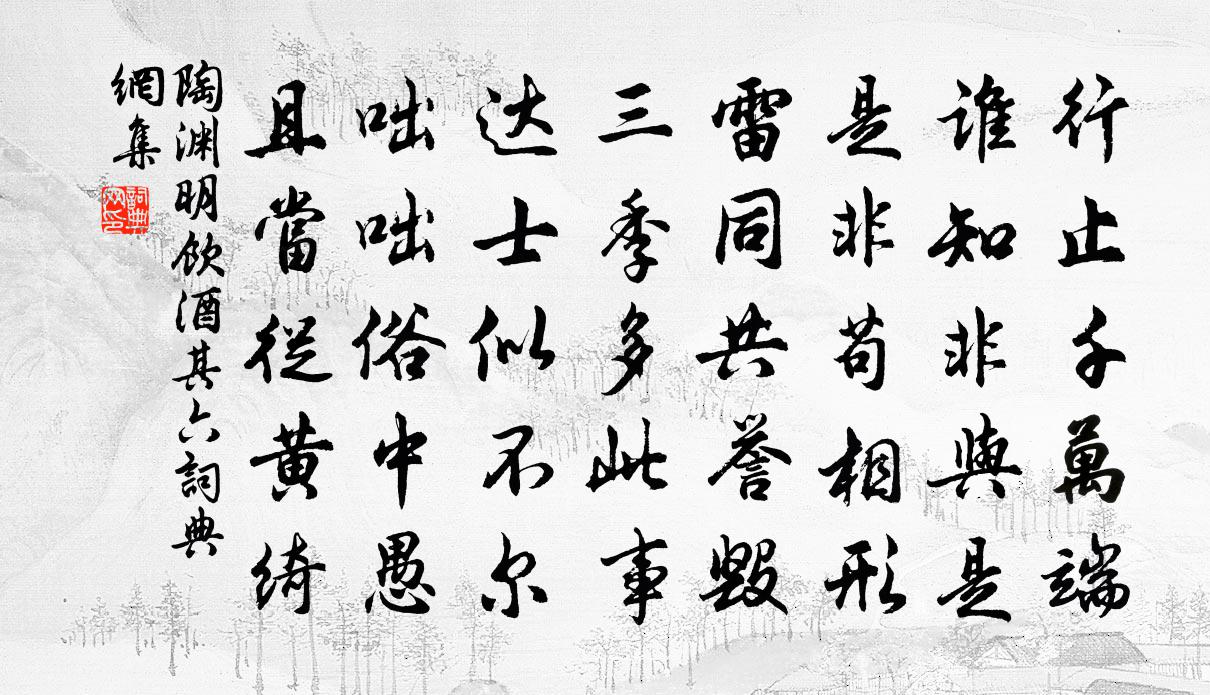 行止千萬端
誰知非與是
是非苟相形
雷同共誉毀
三季多此事
达士似不尔
咄咄俗中愚
且當從黄绮
陶渊明飲酒其六詞典
網集
詞典
网印